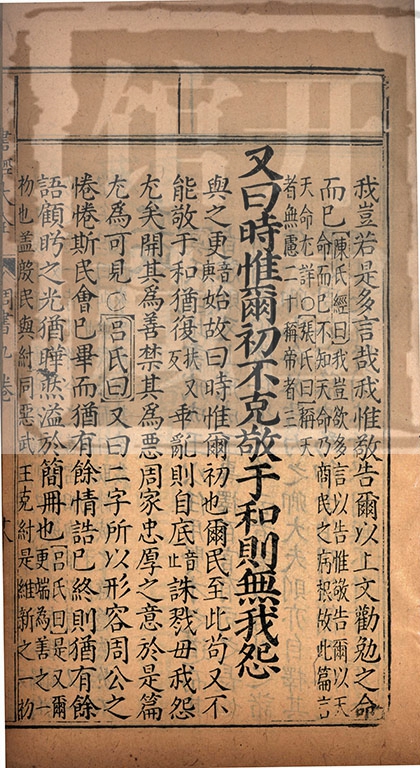 我豈若是多言哉我惟敬告爾以上文勸勉之命
而已陳氏經曰我豈欲多言以告惟敬告爾以天命而已不知天命乃商民之病根故此篇言
天命尤詳○張氏曰稱天者無慮二十稱帝者三
又曰時惟爾初不克敬于和則無我怨
與之更音與始故曰時惟爾初也爾民至此苟又不
能敬于和猶復扶又反乖亂則自底音止誅戮毋我怨
尤矣開其為善禁其為惡周家忠厚之意於是篇
尤為可見○呂氏曰又曰二字所以形容周公之
惓惓斯民會已畢而猶有餘情誥已終則猶有餘
語顧眄之光猶曄然溢於簡冊也呂氏曰是又爾更端為善之一
初也蓋殷民與紂同惡武王克紂是維新之一初
書經大全 周書九卷